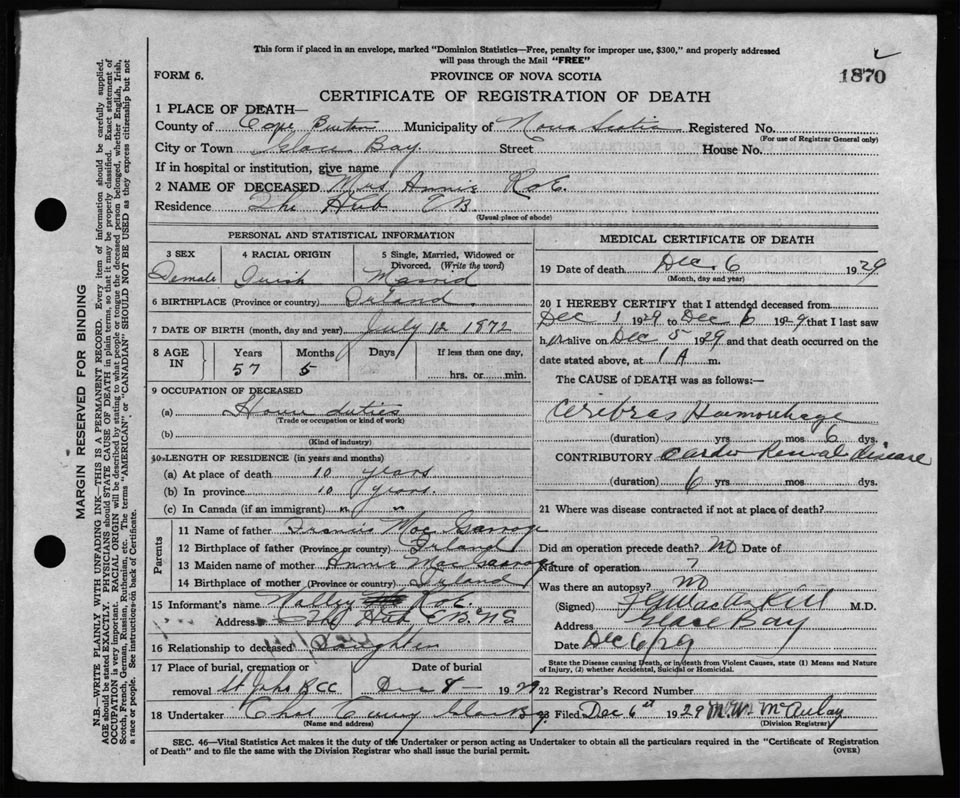 This form if placed in an envelope, marked "Dominion Statistics—Free, penalty for improper use, $300," and properly addressed
will pass through the Mail "FREE"
FORM 6.
PROVINCE OF NOVA SCOTIA
1870
CERTIFICATE OF REGISTRATION OF DEATH
1 PLACE OF DEATH—
County of Cape Breton Municipality of Nova Scotia Registered No.
(For use of Registrar General only)
City or Town Glace Bay Street House No.
If in hospital or institution, give name
2 NAME OF DECEASED Mrs Annie
Residence The Hub CB.
(Usual place of abode)
PERSONAL AND STATISTICAL INFORMATION
3 SEX 4 RACIAL ORIGIN 5 Single, Married, Widowed or
Divorced. (Write the word)
Female Irish Married
6 BIRTHPLACE (Province or country) Irland
7 DATE OF BIRTH (month, day and year) July 12 1872
8 AGE IN Years Months Days If less than one day,
57 5 hrs. or min.
9 OCCUPATION OF DECEASED
(a) House duties
(Trade or occupation or kind of work)
(b)
(Kind of industry)
10 LENGTH OF RESIDENCE (in years and months)
(a) At place of death 10 years
(b) In province 10 years.
(c) In Canada (if an immigrant) " "
Parents
11 Name of father Francis Mac
12 Birthplace of father (Province or country) Irland
13 Maiden name of mother Annie Mac
14 Birthplace of mother (Province or country) Irland
15 Informant's name
Address The Hub CB. NS
16 Relationship to deceased Daughter
17 Place of burial, cremation or Date of burial
removal St Johns RCC Dec 8 — 1929
18 Undertaker Chas
(Name and address)
MEDICAL CERTIFICATE OF DEATH
19 Date of death Dec 6 1929
(Month, day and year)
20 I HEREBY CERTIFY that I attended deceased from
Dec 1 1929 to Dec 6 1929 that I last saw
her alive on Dec 5 1929 and that death occurred on the
date stated above, at 1 A m.
The CAUSE of DEATH was as follows:—
Cerebras Haemorrhage
(duration) yrs mos 6 dys.
CONTRIBUTORY Cardio Renal Disease
(duration) 6 yrs mos dys.
21 Where was disease contracted if not at place of death?
Did an operation precede death? No Date of
Nature of operation ?
Was there an autopsy? No
(Signed) M.D.
Address Glace Bay
Date Dec 6/29
State the Disease causing Death, or in death from Violent Causes, state (1) Means and Nature
of Injury, (2) whether Accidental, Suicidal or Homicidal.
22 Registrar's Record Number
23 Filed Dec 6st 1929 McAulay
(Division Registrar)
SEC. 46—Vital Statistics Act makes it the duty of the Undertaker or person acting as Undertaker to obtain all the particulars required in the "Certificate of Registration
of Death" and to file the same with the Division Registrar who shall issue the burial permit.
(OVER)
MARGIN RESERVED FOR BINDING
N.B.—WRITE PLAINLY WITH UNFADING INK—THIS IS A PERMANENT RECORD. Every item of information should be carefully supplied.
AGE should be stated EXACTLY. PHYSICIANS should STATE CAUSE OF DEATH in plain terms, so that it may be properly classified. Exact statement of
OCCUPATION is very important. RACIAL ORIGIN will be described by stating to what people or tongue the deceased person belonged, whether English, Irish,
Scotch, French, German, Russian, Ruthenian, etc. The terms "AMERICAN" or "CANADIAN" SHOULD NOT BE USED as they express citizenship but not
a race or people. See instructions on back of Certificate.